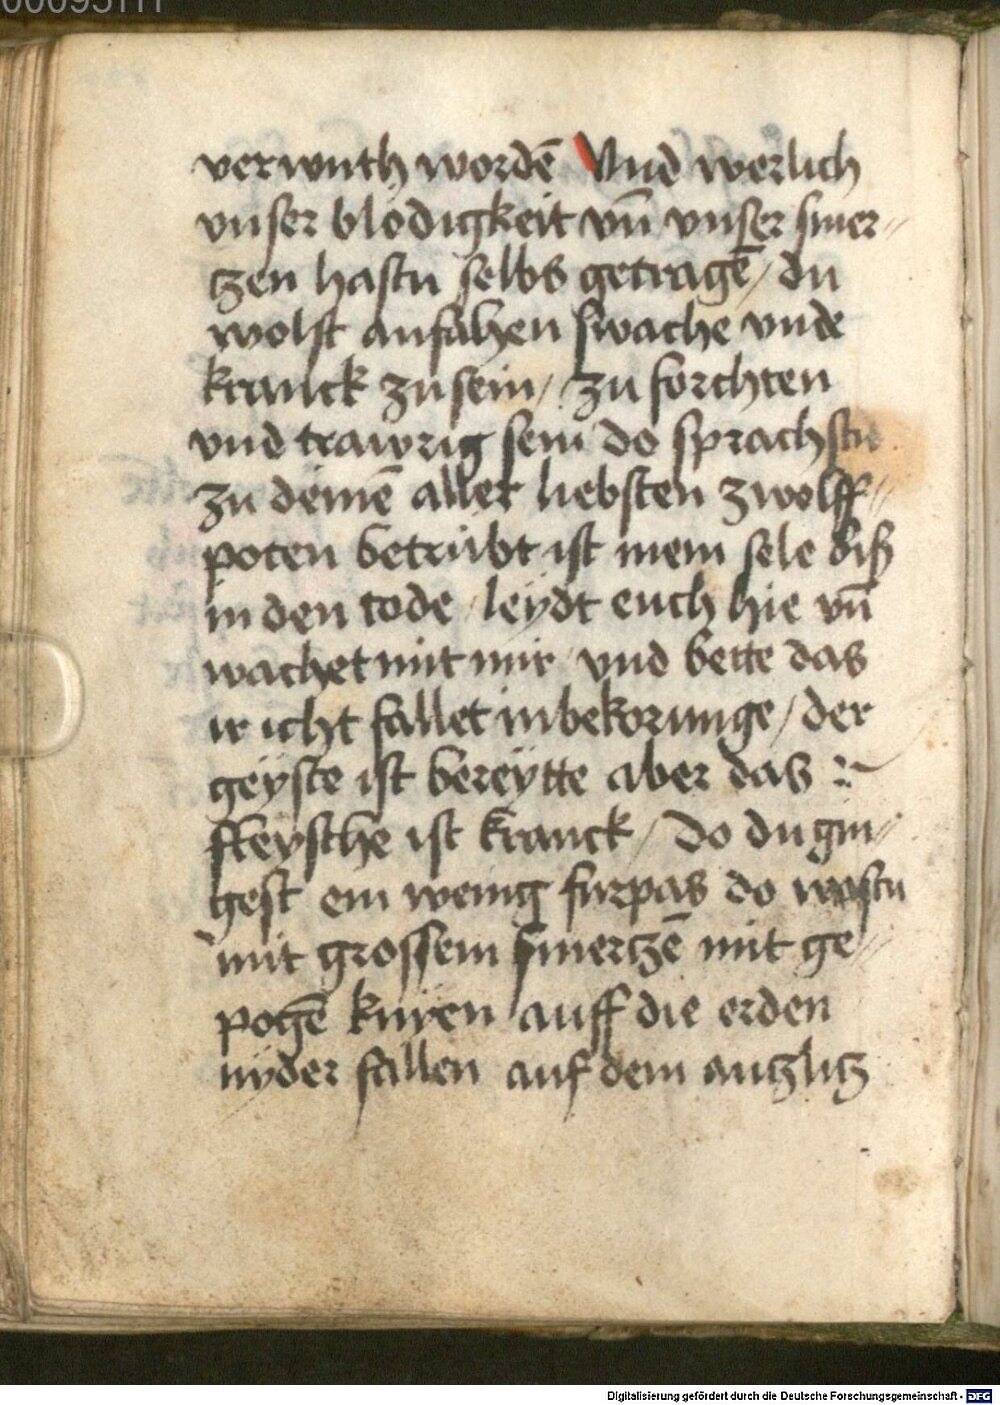 00095111
verwuth wordē Vnd werlich
vnser blödigkeit vn̄ vnser smer⸗
tzen hastu selbs getragē / du
wolst anfahen swache vnde
kranck zu sein / zu forchten
vnd trawrig sein do sprachstu
zu deinē aller liebsten zwolff⸗
poten betrübt ist mein sele biß
in den tode leÿdt euch hie vn̄
wachet mit mir vnd bette das
ir icht fallet in bekorunge / der
geÿste ist bereÿtte aber das
fleysche ist kranck / Do du gin⸗
gest ein wenig furpas do wastu
mit grossem smertzē mit ge⸗
pogē knyen auff die erden
nÿder fallen auf dem antzlitz
Digitalisierung gefördert durch die Deutsche Forschungsgemeinschaft - DFG